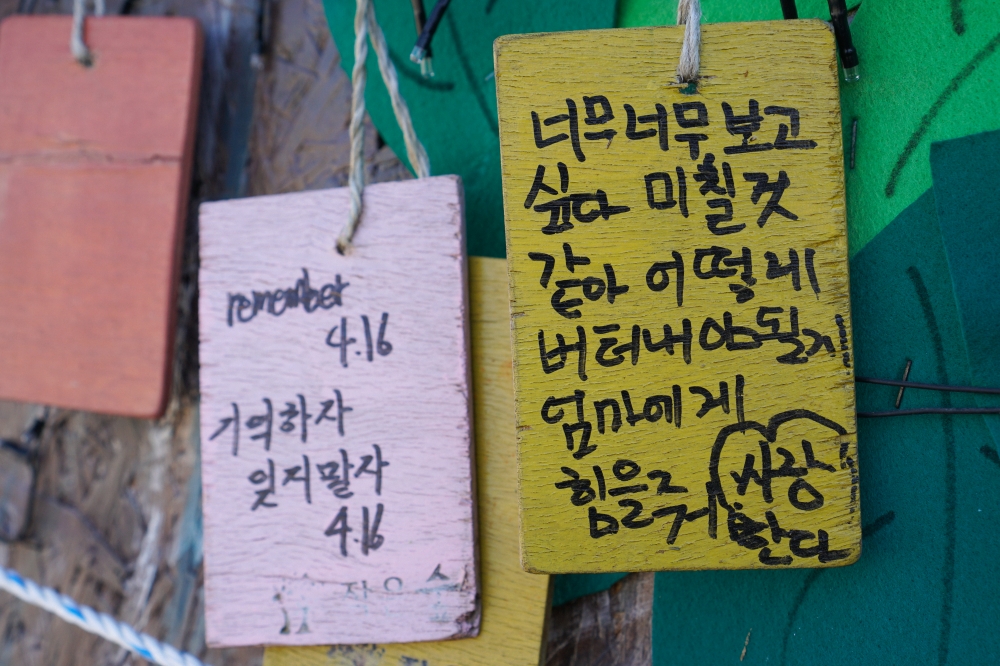 remember
4.16
기억하자
잊지말자
4.16
너무너무 보고
싶다 미칠것
같아 어떻게
버텨내야될지
엄마에게
힘을주게
사랑
한다